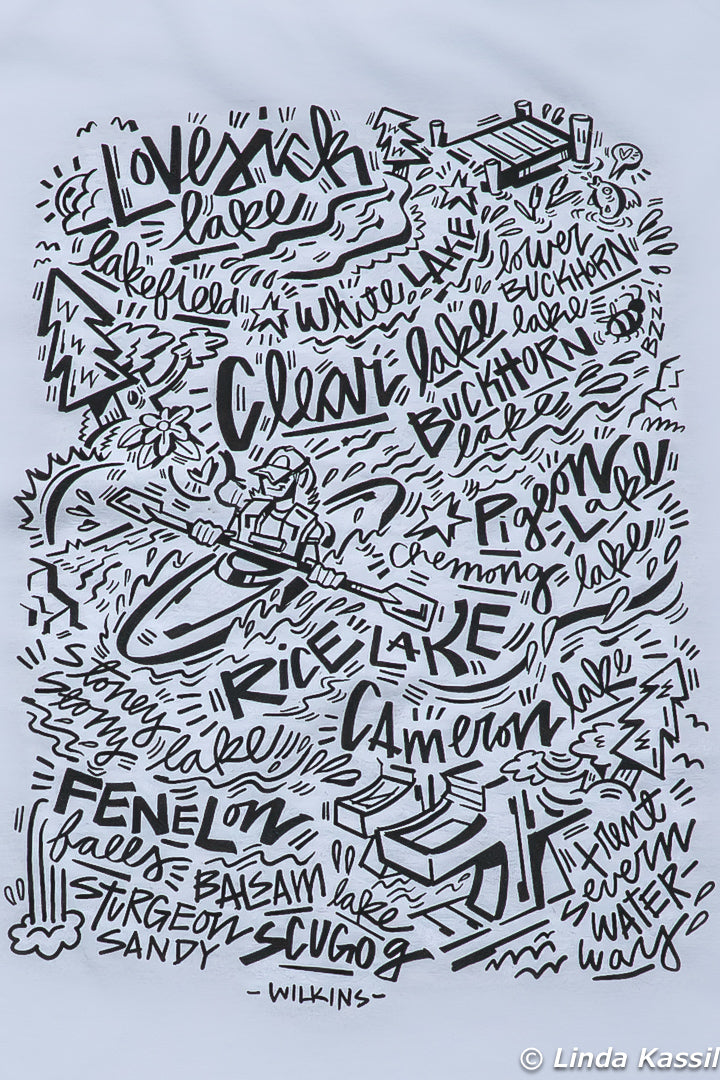 Lovesick
lake
lakefield
white LAKE
lower
BUCKHORN
lake
BZZZ!
Clear lake
BUCKHORN
lake
Pigeon
Lake
chemong lake
RICE LAKE
Stoney
Stony
lake
CAmeron lake
FENELon
falls
BALSAM
lake
STURGEON
SANDY
SCUGOg
trent
severn
WATER-
way
-WILKINS-
© Linda Kassil